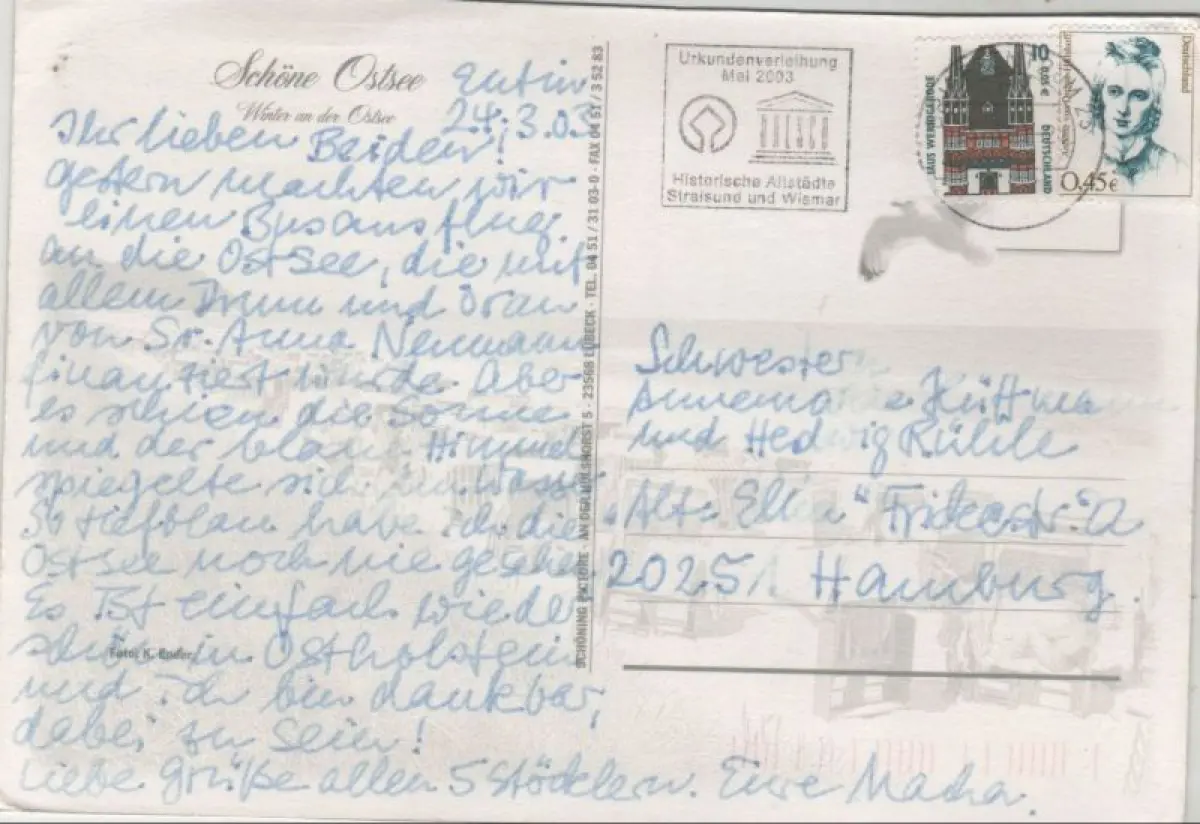 Schöne Ostsee
Winter an der Ostsee
Eutin
24.3.03
Ihr lieben Beiden!
gestern machten wir
einen Busausflug
an die Ostsee, die mit
allem Drum und Dran
von Sr. Anna Neumann
finanziert wurde. Aber
es schien die Sonne
und der blaue Himmel
spiegelte sich im Wasser
So tiefblau habe ich die
Ostsee noch nie gesehen
Es ist einfach wieder
schön in Ostholstein
und ich bin dankbar,
dabei zu sein!
Liebe Grüße allen 5 Stöcklern. Eure Macha.
Foto: K. Ender
SCHÖNING PICTURE · AN DER HÜLSHORST 5 · 23568 LÜBECK · TEL. 04 51 / 31 03-0 · FAX 04 51 / 3 52 83
Urkundenverleihung
Mai 2003
Historische Altstädte
Stralsund und Wismar
10
0,05 €
DEUTSCHLAND
HAUS WERNIGERODE
Deutschland
0,45€
Schwestern
Annemarie Hüttmann
und Hedwig Rühle
"Alt-Elim" Frickestr.
20251 Hamburg.